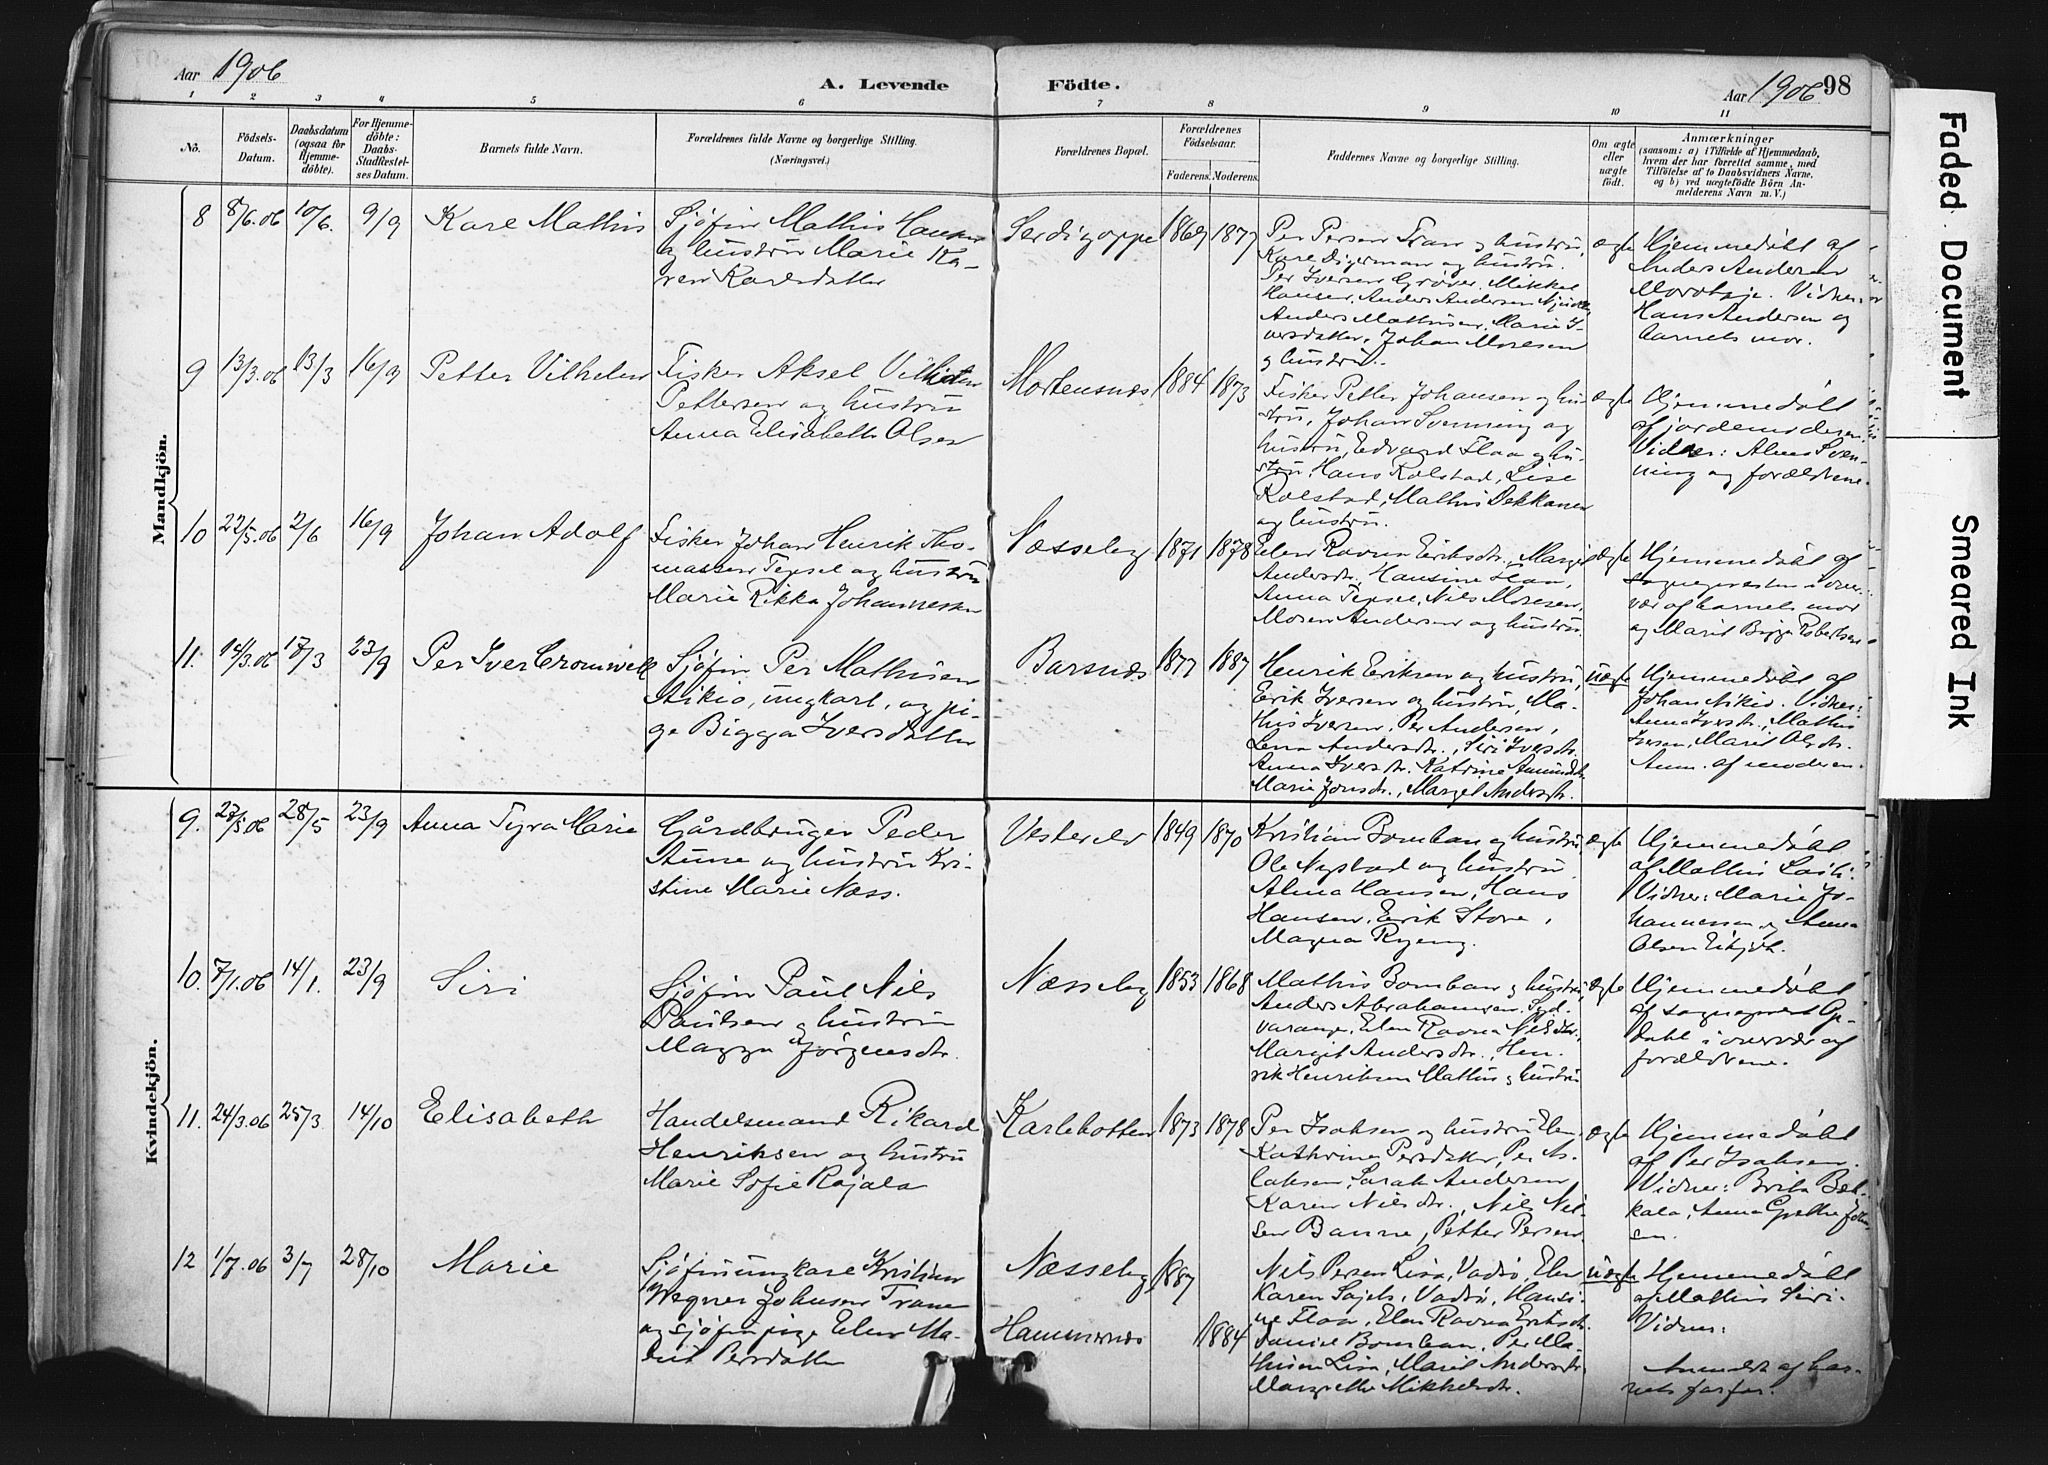 Aar 1906
A. Levende
Födte.
Aar 1906 98
1 2 3 4 5 6 7 8 9 10 11
Nò.
Födsels-Datum.
Daabsdatum (ogsaa for Hjemmedöbte).
For Hjemmedöbte: Daabs-Stadfæstelses Datum.
Barnets fulde Navn.
Forældrenes fulde Navne og borgerlige Stilling. (Næringsvei.)
Forældrenes Bopæl.
Forældrenes Födselsaar.
Faderens. Moderens.
Faddernes Navne og borgerlige Stilling.
Om ægte eller uægte födt.
Anmærkninger
(saasom: a) i Tilfælde af Hjemmedaab, hvem der har forrettet samme, med Tilföielse af to Daabsvidners Navne, og b) ved uægtefödte Börn Anmelderens Navn m. V.)
Mandkjön.
8 8/6.06 10/6. 9/9 Karl Mathis
Sjøfin Mathis Hansen
og hustru Marie Ka-
ren Karlsdatter
1869 1877
Per Persen Tran og hustru,
Kare Digerman og hustru.
Per Iversen Grøver. Mikkel
Hansen, Anders Andersen
Anders Mathisen, Marie I-
versdatter, Johan Mosesen
og hustru.
ægte
Hjemmedøbt af
Anders Andersen
Vidner:
Hans Andersen og
barnets mor.
9 13/3.06 13/3 16/9 Petter Vilhelm
Fisker Aksel Vilhelm
Pettersen og hustru
Anna Elisabeth Olsen
Mortensnæs 1884 1873
Fisker Petter Johansen og hu-
stru, Johan Svenning og
hustru, Edvard Flaa og hu-
stru, Hans Rolstad, Lise
Rolstad, Mathis Dekkanen
og hustru.
ægte
Hjemmedøbt
af jordemoderen.
Vidner: Alma Sven-
ning og forældrene.
10 22/5.06 2/6 16/9 Johan Adolf
Fisker Johan Henrik Tho-
massen Tepsel og hustru
Marie Rikka Johannesen
Næsseby 1871 1878
Elen Ravna Eriksdtr., Margit
Andersdtr., Hansine Flaa,
Anna Tepsel, Nils Mosesen,
Mosen Andersen og hustru.
ægte
Hjemmedøbt af
sognepresten i over-
vær af barnets mor
og Marit Bigga Robertsen
11. 14/3.06 17/3 23/9 Per Iver Cromwell
Sjøfin Per Mathisen
Aikio, ungkarl, og pi-
ge Bigga Iversdatter
Barsnæs 1877 1887
Henrik Eriksen og hustru,
Erik Iversen og hustru, Ma-
this Iversen, Per Andersen,
Lena Andersdtr., Siri Iversdtr.
Anna Iversdtr. Katrine Amundsdtr.
Marie Jonsdtr., Margit Andersdtr.
uægte
Hjemmedøbt af
Johan Aikio. Vidner:
Anna Iversdtr., Mathis
Iversen, Marit Olsdtr.
Anm. af moderen.
Kvindekjön.
9. 27/5.06 28/5 23/9 Anna Tyra Marie
Gårdbruger Peder
Aune og hustru Kri-
stine Marie Næss.
Vesterelv 1849 1870
Kristian Bomban og hustru,
Ole Nystad og hustru
Alma Hansen, Hans
Hansen, Erik Store,
Magna Ryeng.
ægte
Hjemmedøbt
af Mathis
Vidner: Marie Jo-
hannessen og Anna
Olsen
10. 7/1.06 14/1. 23/9 Siri
Sjøfin Paul Nils
Paulsen og hustru
Magga Jørgensdtr.
Næsseby 1853 1868
Mathis Bomban og hustru,
Anders Abrahamsen. Syd-
varanger, Elen Ravna Nilsdtr,
Margit Andersdtr., Hen-
rik Henriksen Mathis og hustru
ægte
Hjemmedøbt
af sogneprest Op-
dahl i overvær af
forældrene.
11. 24/3.06 25/3 14/10 Elisabeth
Handelsmand Rikard
Henriksen og hustru
Marie Sofie Rajala
Karlebotten 1873 1878
Per Isaksen og hustru Elen
Kathrine Persdatter, Per As-
laksen, Sarah Andersen
Karen Nilsdtr., Nils Nil-
sen Banne, Petter Persen
ægte
Hjemmedøbt
af Per Isaksen.
Vidner: Brita
Anna Grethe Johan-
sen.
12 1/7.06 3/7 28/10 Marie
Sjøfinungkarl Kristian
Wegner Johnsen Trane
og sjøfinpige Elen Ma-
rit Persdatter
Næsseby 1887
Hammernæs 1884
Nils Persen Lisa, Vadsø, Elen
Karen Sajets, Vadsø, Hansi-
ne Flaa, Elen Ravna Eriksdtr.
Daniel Bomban, Per Ma-
thisen Lisa, Marit Andersdtr.
Margrethe Mikkelsdtr.
uægte
Hjemmedøbt
af Mathis Siri.
Vidner:
Anmeldt af bar-
nets farfar.
Faded Document
Smeared Ink